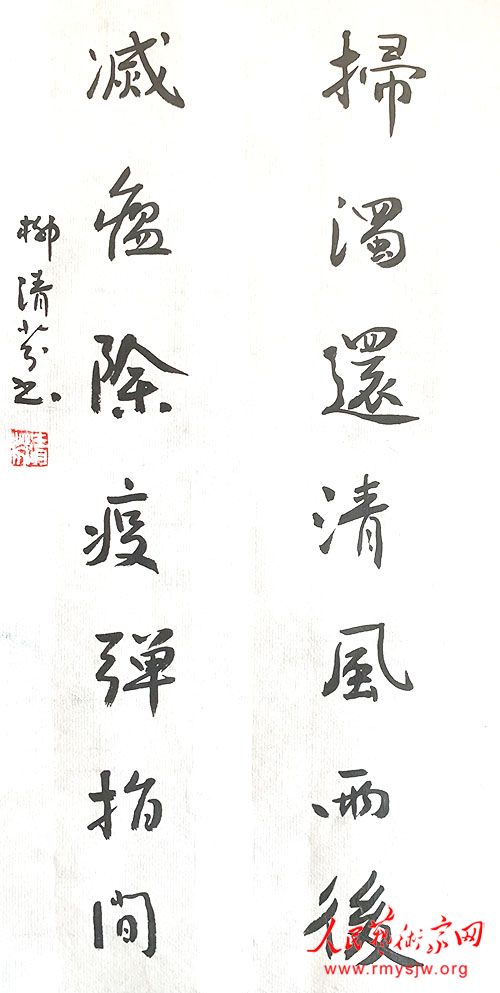 掃濁還清風雨後
滅瘟除疫弾指間
柳清芬书
人民藝術家网
www.rmysjw.org